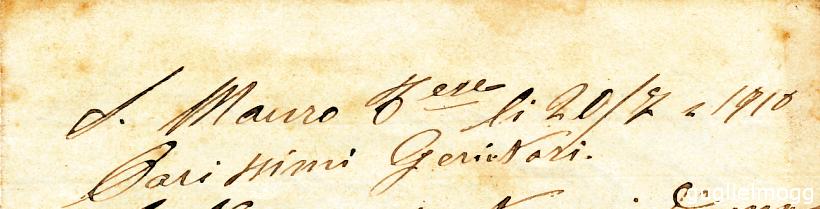 S. Mauro T.ese li 20/7 - 1910
Carissimi Genitori.
guglielmogg